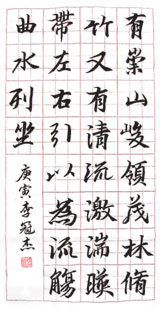 有崇山峻領茂林脩
竹又有清流激湍暎
帶左右引以為流觴
曲水列坐
庚寅李冠杰